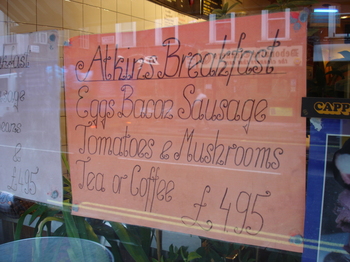 Atkins Breakfast
Eggs Bacon Sausage
Tomatoes & Mushrooms
Tea or Coffee
£4.95
£4.95
CAPP